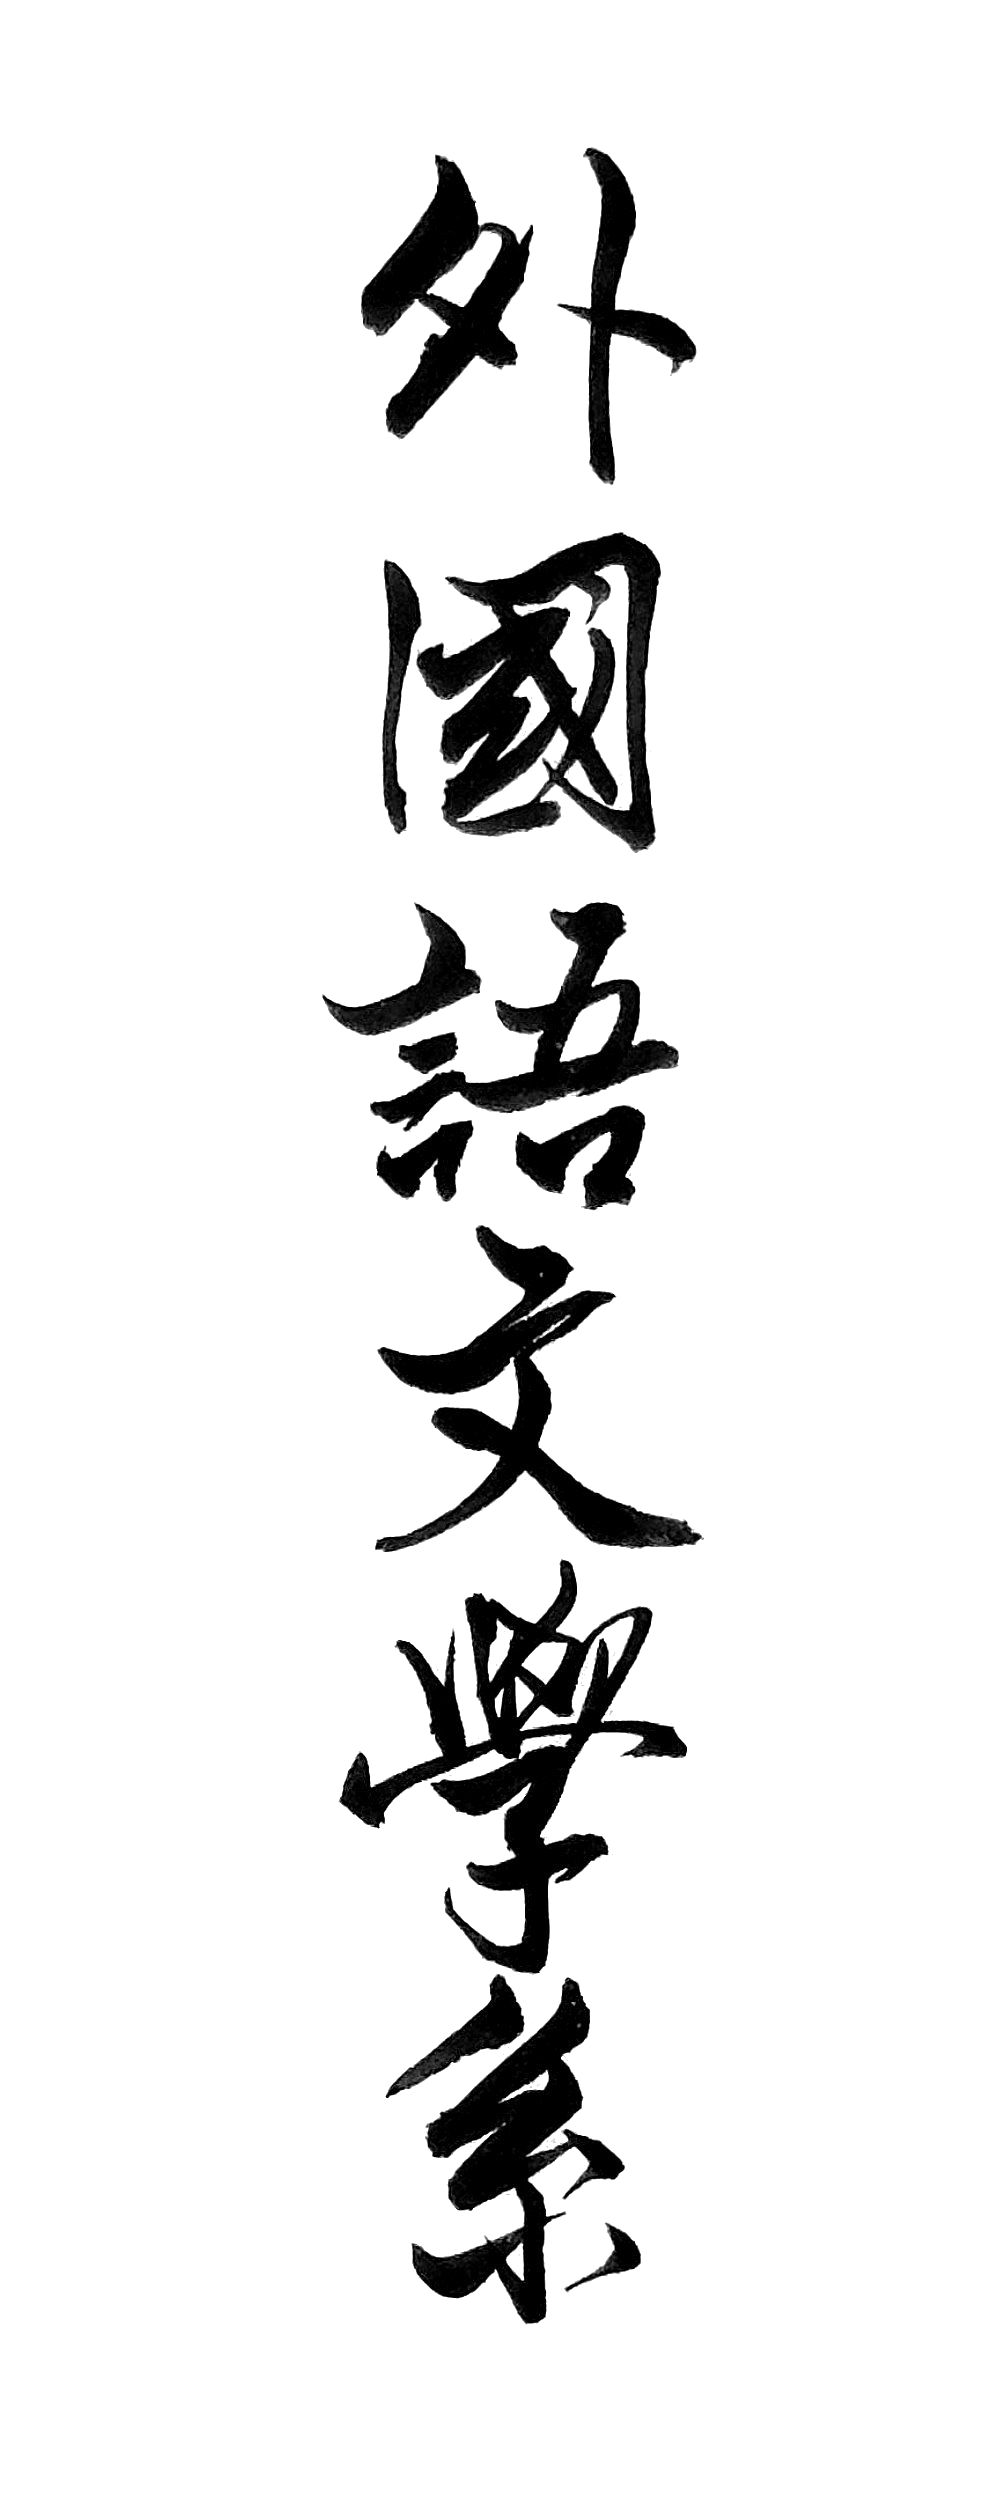 外國語文學系